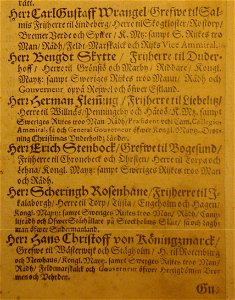 rätt.
Herr Carl Gustaff Wrangel / Grefwe til Sal-
mis Friherre til Lindeberg / Herre til Slogfloster / Rostorp /
Bremer Verde och Spyker / K. M:tz sampt S. Rijkes tro
Man / Rådh / Feldt-Marskalck och Rijks Vice Ammiral.
Herr Bengdt Skytte / Frijherre til Duder-
hoff / Herre til Grönsöö och Marbn / Riddare / Kongl.
Mayt:z sampt Sweriges Rijkes troo Mann / Rådh och
Gouverneur öppå Reswel och öfwer Estland.
Herr Herman Fleming / Frijherre til Liebelitz /
Herre til Willnäs / Penningeby och Håtöö K. M:tz sampt
Sweriges Rijkes troo Man Rådh / Cam. Collegio
Ammiral / så och General Gouverneur öfwer Kongl. Mayt:z Drot-
ning Christinas Underhollz Länder.
Herr Erich Stenbock / Grefwe til Bogesund /
Frijherre til Chronebeck och Öhesten / Herre til Torpa och
Kongl. Mayt:z sampt Sweriges Rijkes troo Man
och Rådh.
Herr Scheringh Rosenhane / Frijherre til J-
kalaborgh / Herre til Torp / Tijsta / Engeholm och Hagen /
Kongl. Mayt:z sampt Sweriges Rijkes troo Man / Rådh / Can-
cellie Rådh och Öfwerståthållare på Stockholms Slått / så och Lagh-
man öfwer Südermanland.
Herr Hans Christoff von Köningzmarck /
Grefwe til Wästerwijk och Stäghholm / H. til Rotenburg
och Neuhaus / Kongl. Mayt:z sampt Sweriges Rijkes troo Man /
Rådh / Feldtmarskalck och Gouverneur öfwer Hertigdömen Bre-
men och Vehrden.
Gu-